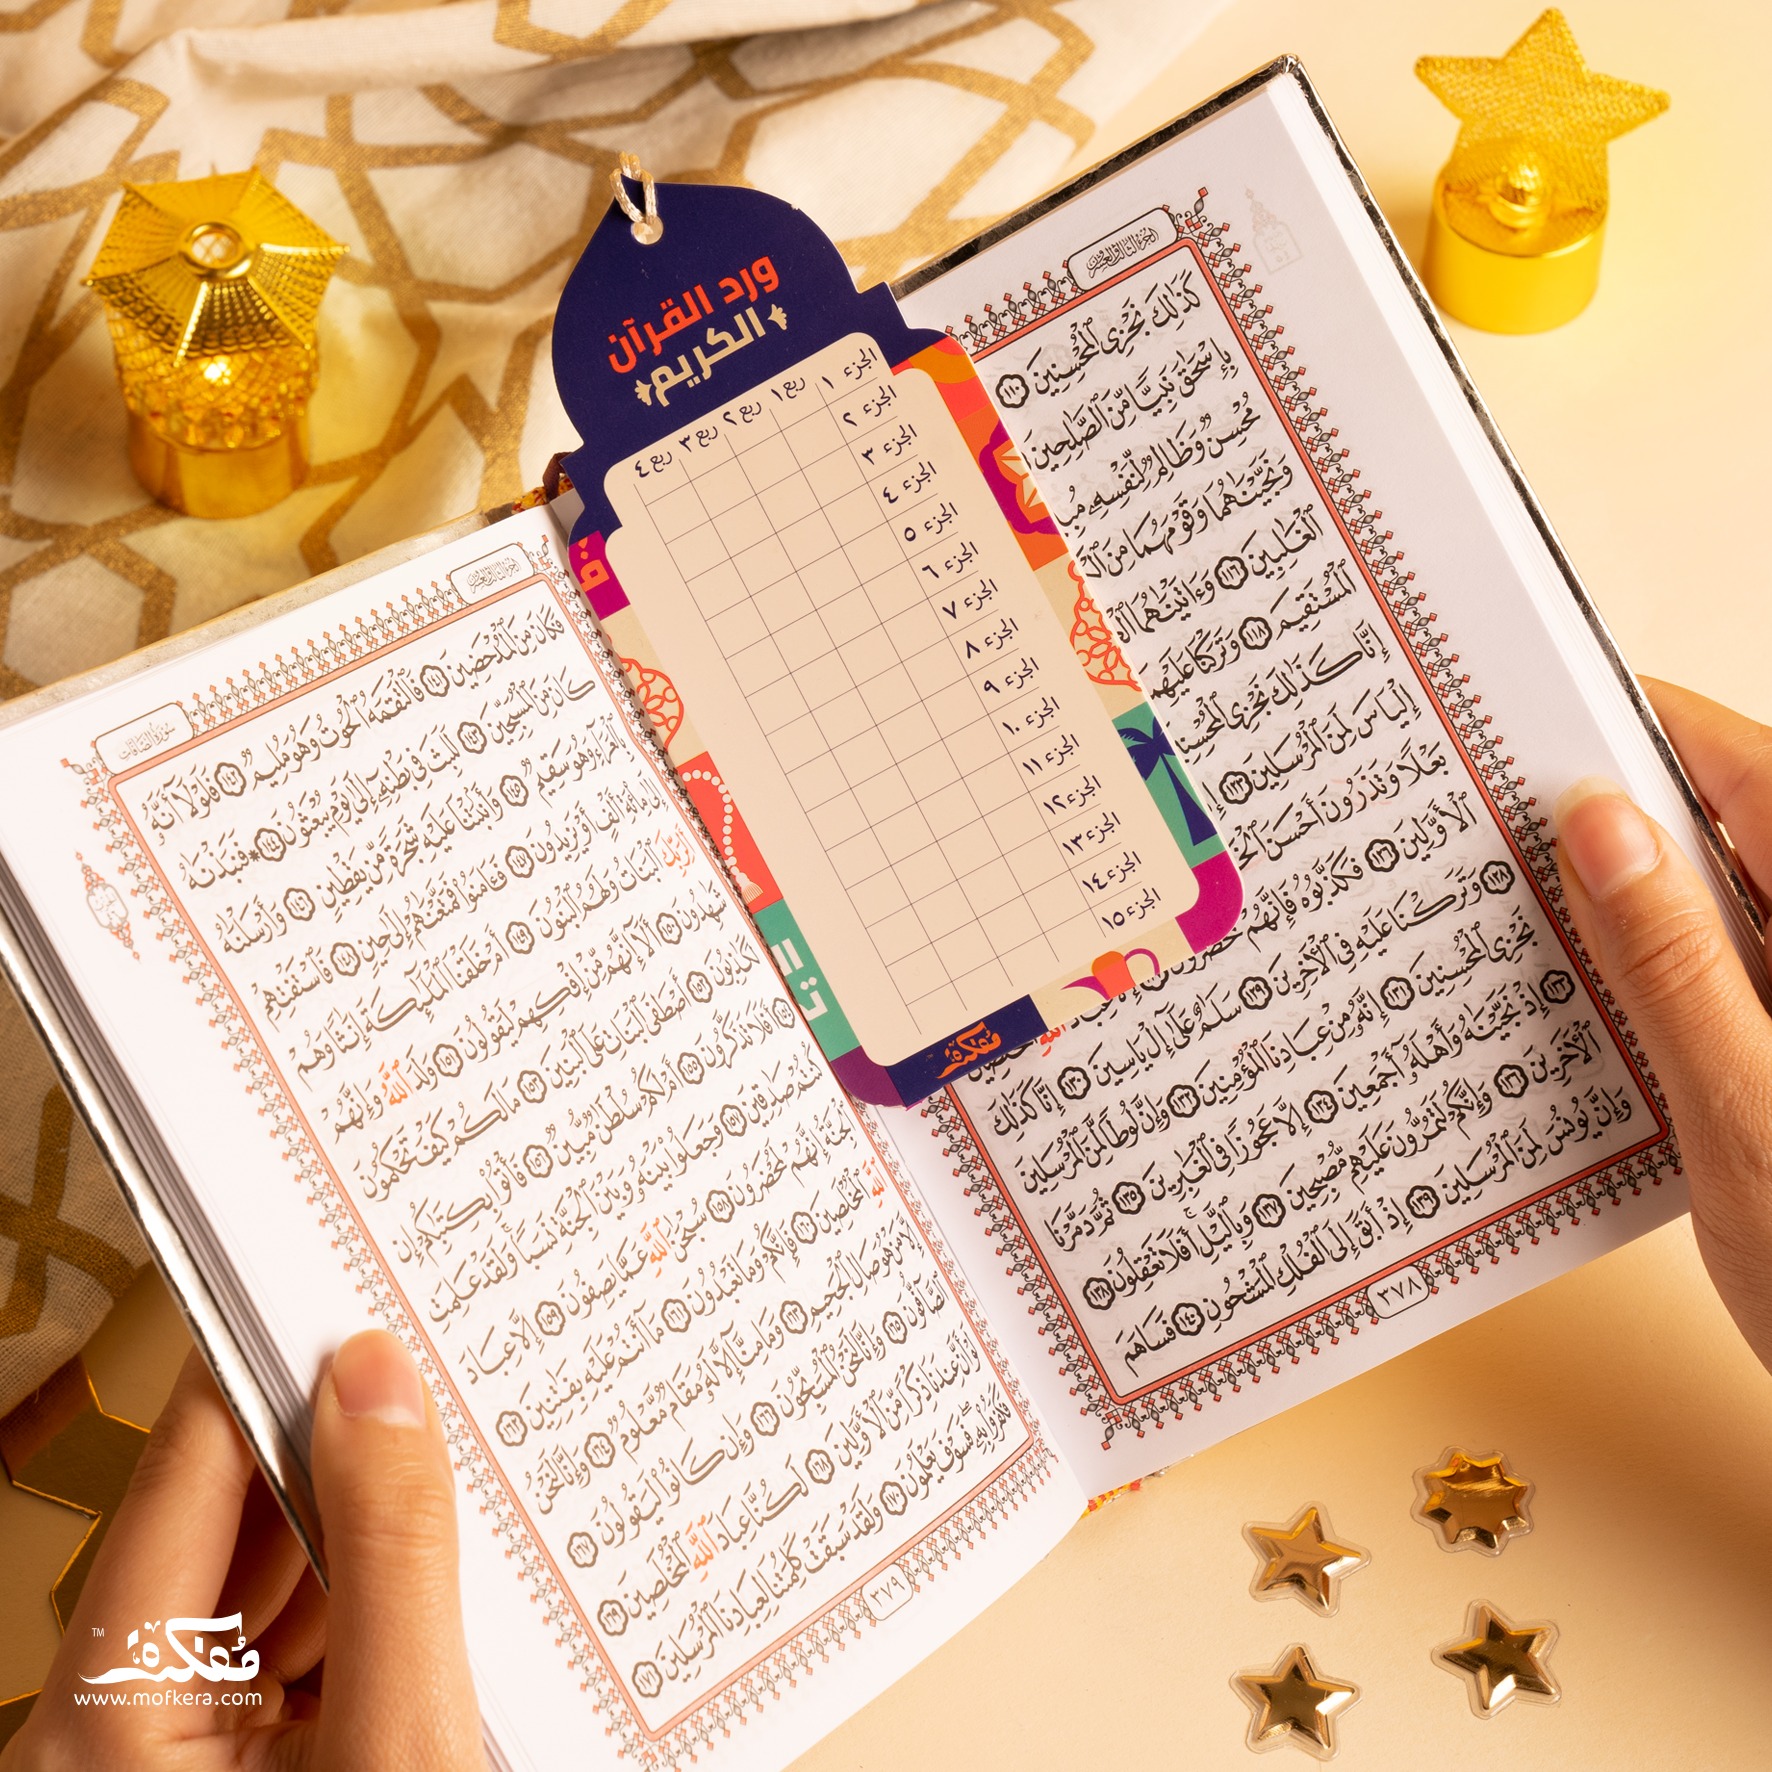 ورد القرآن
الكريم
الجزء ١ ربع ١ ربع ٢ ربع ٣ ربع ٤
الجزء ٢
الجزء ٣
الجزء ٤
الجزء ٥
الجزء ٦
الجزء ٧
الجزء ٨
الجزء ٩
الجزء ١٠
الجزء ١١
الجزء ١٢
الجزء ١٣
الجزء ١٤
الجزء ١٥
مفكرة
الجزء الثالث والعشرون
كَذَٰلِكَ نَجْزِي الْمُحْسِنِينَ ١١٠
بِإِسْحَاقَ نَبِيًّا مِّنَ الصَّالِحِينَ
مُحْسِنٌ وَظَالِمٌ لِّنَفْسِهِ
وَنَجَّيْنَاهُمَا وَقَوْمَهُمَا مِنَ
الْغَالِبِينَ ١١٦ وَآتَيْنَاهُمَا
الْمُسْتَقِيمَ ١١٨ وَتَرَكْنَا عَلَيْهِمَا
إِنَّا كَذَٰلِكَ نَجْزِي
إِلْيَاسَ لَمِنَ الْمُرْسَلِينَ ١٢٣
بَعْلًا وَتَذَرُونَ أَحْسَنَ
الْأَوَّلِينَ ١٢٦ فَكَذَّبُوهُ فَإِنَّهُمْ
١٢٨ وَتَرَكْنَا عَلَيْهِ فِي الْآخِرِينَ ١٢٩ سَلَامٌ عَلَىٰ إِلْ يَاسِينَ ١٣٠ إِنَّا كَذَٰلِكَ
نَجْزِي الْمُحْسِنِينَ ١٣١ إِنَّهُ مِنْ عِبَادِنَا الْمُؤْمِنِينَ ١٣٢ وَإِنَّ لُوطًا لَّمِنَ الْمُرْسَلِينَ
١٣٣ إِذْ نَجَّيْنَاهُ وَأَهْلَهُ أَجْمَعِينَ ١٣٤ إِلَّا عَجُوزًا فِي الْغَابِرِينَ ١٣٥ ثُمَّ دَمَّرْنَا
الْآخَرِينَ ١٣٦ وَإِنَّكُمْ لَتَمُرُّونَ عَلَيْهِم مُّصْبِحِينَ ١٣٧ وَبِاللَّيْلِ أَفَلَا تَعْقِلُونَ ١٣٨
وَإِنَّ يُونُسَ لَمِنَ الْمُرْسَلِينَ ١٣٩ إِذْ أَبَقَ إِلَى الْفُلْكِ الْمَشْحُونِ ١٤٠ فَسَاهَمَ
٣٧٨
الجزء الثالث والعشرون
سورة الصافات
فَكَانَ مِنَ الْمُدْحَضِينَ ١٤١ فَالْتَقَمَهُ الْحُوتُ وَهُوَ مُلِيمٌ ١٤٢ فَلَوْلَا أَنَّهُ
كَانَ مِنَ الْمُسَبِّحِينَ ١٤٣ لَلَبِثَ فِي بَطْنِهِ إِلَىٰ يَوْمِ يُبْعَثُونَ ١٤٤ فَنَبَذْنَاهُ
بِالْعَرَاءِ وَهُوَ سَقِيمٌ ١٤٥ وَأَنبَتْنَا عَلَيْهِ شَجَرَةً مِّن يَقْطِينٍ ١٤٦ وَأَرْسَلْنَاهُ
إِلَىٰ مِائَةِ أَلْفٍ أَوْ يَزِيدُونَ ١٤٧ فَآمَنُوا فَمَتَّعْنَاهُمْ إِلَىٰ حِينٍ ١٤٨ فَاسْتَفْتِهِمْ
أَلِرَبِّكَ الْبَنَاتُ وَلَهُمُ الْبَنُونَ ١٤٩ أَمْ خَلَقْنَا الْمَلَائِكَةَ إِنَاثًا وَهُمْ
شَاهِدُونَ ١٥٠ أَلَا إِنَّهُم مِّنْ إِفْكِهِمْ لَيَقُولُونَ ١٥١ وَلَدَ اللَّهُ وَإِنَّهُمْ
لَكَاذِبُونَ ١٥٢ أَصْطَفَى الْبَنَاتِ عَلَى الْبَنِينَ ١٥٣ مَا لَكُمْ كَيْفَ تَحْكُمُونَ
١٥٤ أَفَلَا تَذَكَّرُونَ ١٥٥ أَمْ لَكُمْ سُلْطَانٌ مُّبِينٌ ١٥٦ فَأْتُوا بِكِتَابِكُمْ إِن
كُنتُمْ صَادِقِينَ ١٥٧ وَجَعَلُوا بَيْنَهُ وَبَيْنَ الْجِنَّةِ نَسَبًا وَلَقَدْ عَلِمَتِ
الْجِنَّةُ إِنَّهُمْ لَمُحْضَرُونَ ١٥٨ سُبْحَانَ اللَّهِ عَمَّا يَصِفُونَ ١٥٩ إِلَّا عِبَادَ
اللَّهِ الْمُخْلَصِينَ ١٦٠ فَإِنَّكُمْ وَمَا تَعْبُدُونَ ١٦١ مَا أَنتُمْ عَلَيْهِ بِفَاتِنِينَ ١٦٢
إِلَّا مَنْ هُوَ صَالِ الْجَحِيمِ ١٦٣ وَمَا مِنَّا إِلَّا لَهُ مَقَامٌ مَّعْلُومٌ ١٦٤ وَإِنَّا لَنَحْنُ
الصَّافُّونَ ١٦٥ وَإِنَّا لَنَحْنُ الْمُسَبِّحُونَ ١٦٦ وَإِن كَانُوا لَيَقُولُونَ ١٦٧
لَوْ أَنَّ عِندَنَا ذِكْرًا مِّنَ الْأَوَّلِينَ ١٦٨ لَكُنَّا عِبَادَ اللَّهِ الْمُخْلَصِينَ ١٦٩
فَكَفَرُوا بِهِ فَسَوْفَ يَعْلَمُونَ ١٧٠ وَلَقَدْ سَبَقَتْ كَلِمَتُنَا لِعِبَادِنَا الْمُرْسَلِينَ ١٧١
٣٧٩
مفكرة ™
www.mofkera.com